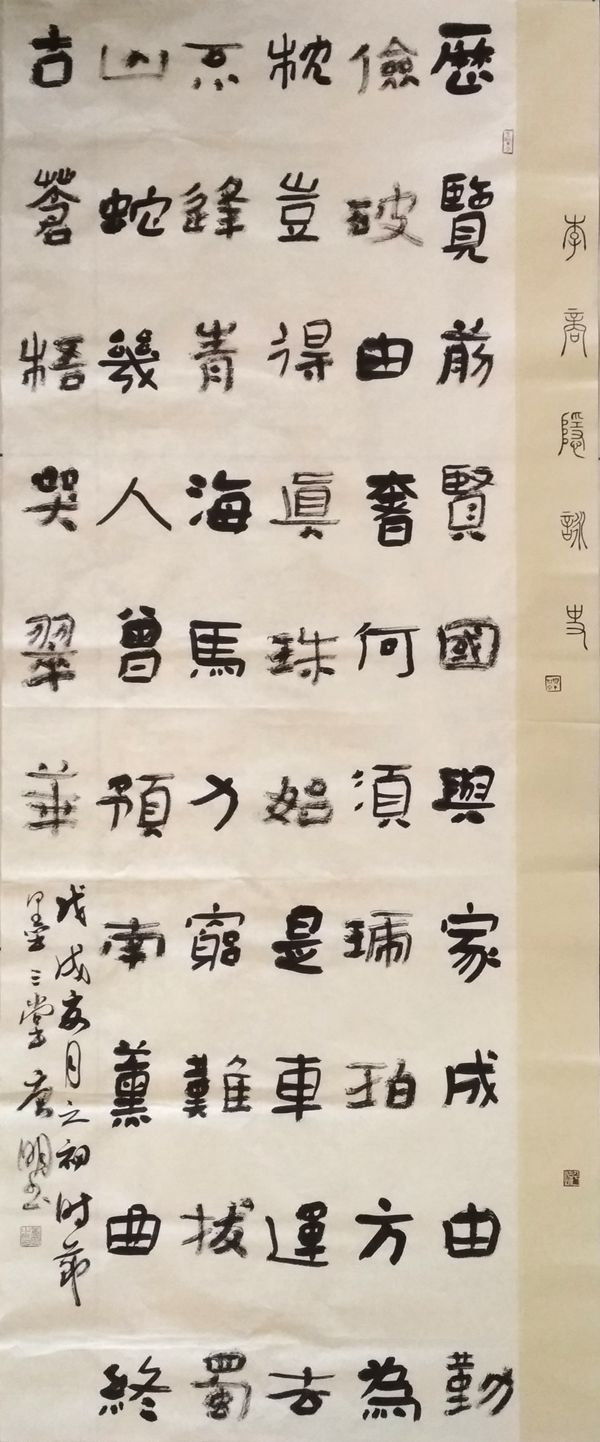 李商隱詠史
歷覽前賢國與家成由勤
儉破由奢何須琥珀方為
枕豈得真珠始是車運去
不逢青海馬力窮難拔蜀
山蛇幾人曾預南薰曲終
古蒼梧哭翠華
戊戌亥月之初时节
墨三堂 明书